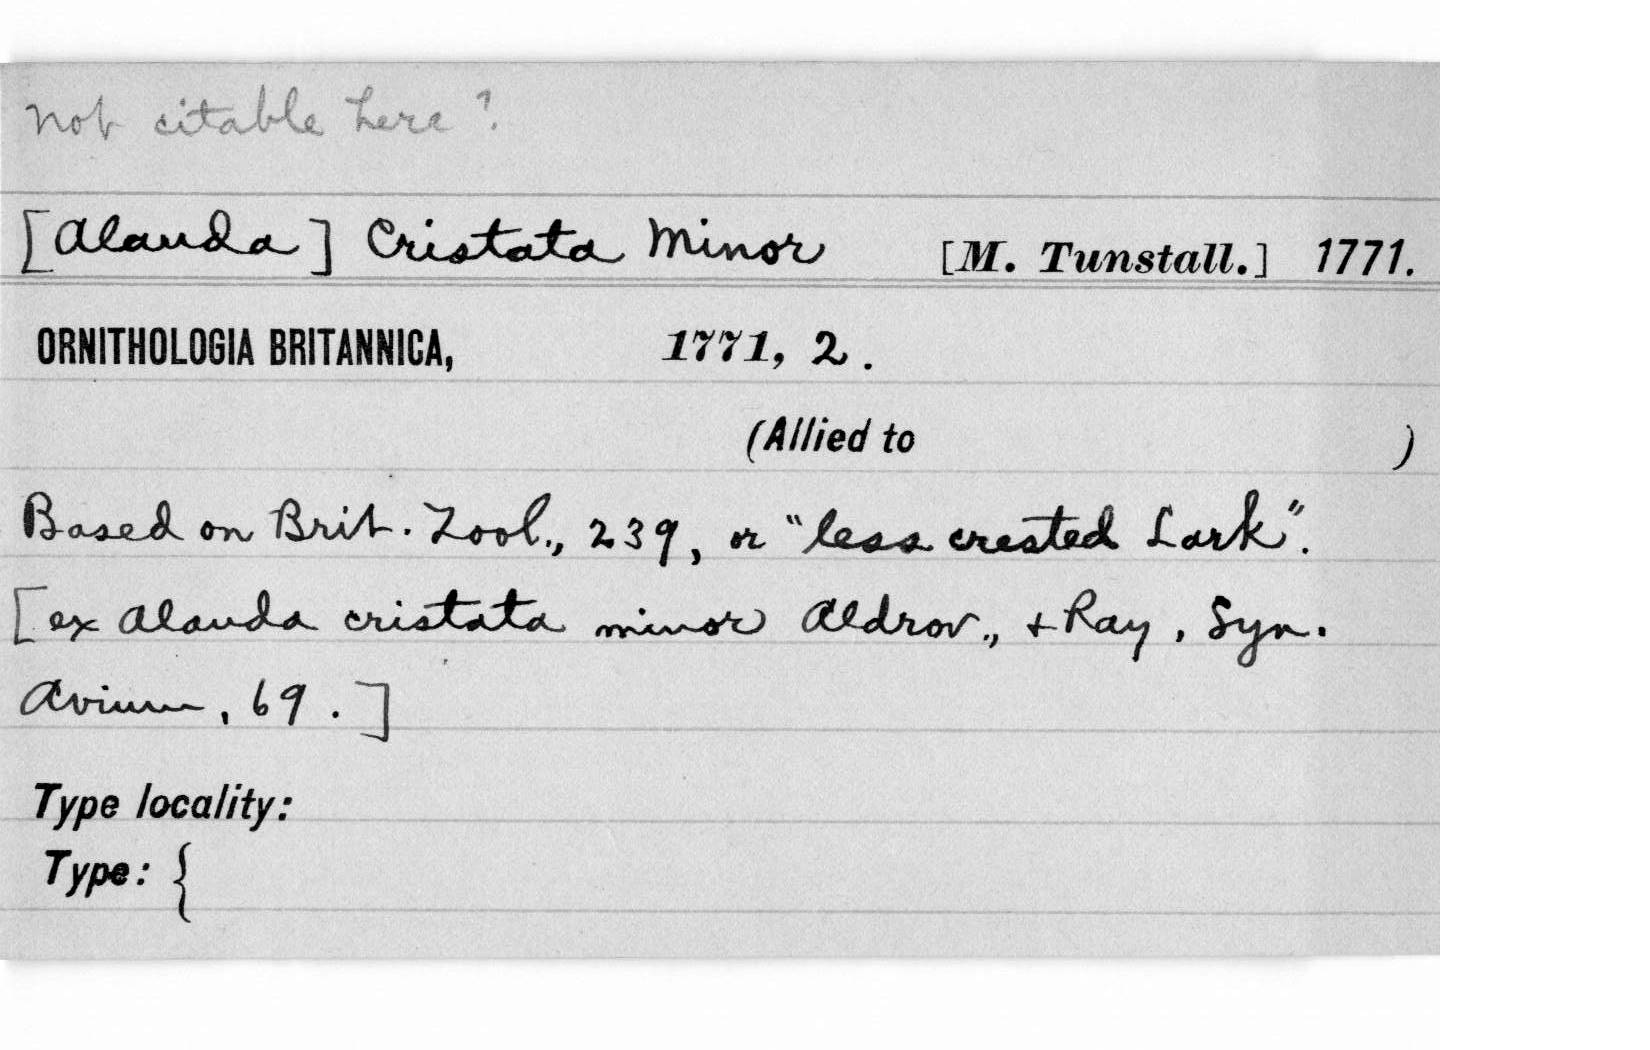 not citable here?
[Alauda] Cristata Minor [M. Tunstall.] 1771.
ORNITHOLOGIA BRITANNICA, 1771, 2.
(Allied to )
Based on Brit. Zool., 239, or "less crested Lark".
[ex Alauda cristata minor Aldrov., + Ray, Syn.
Avium, 69.]
Type locality:
Type: {